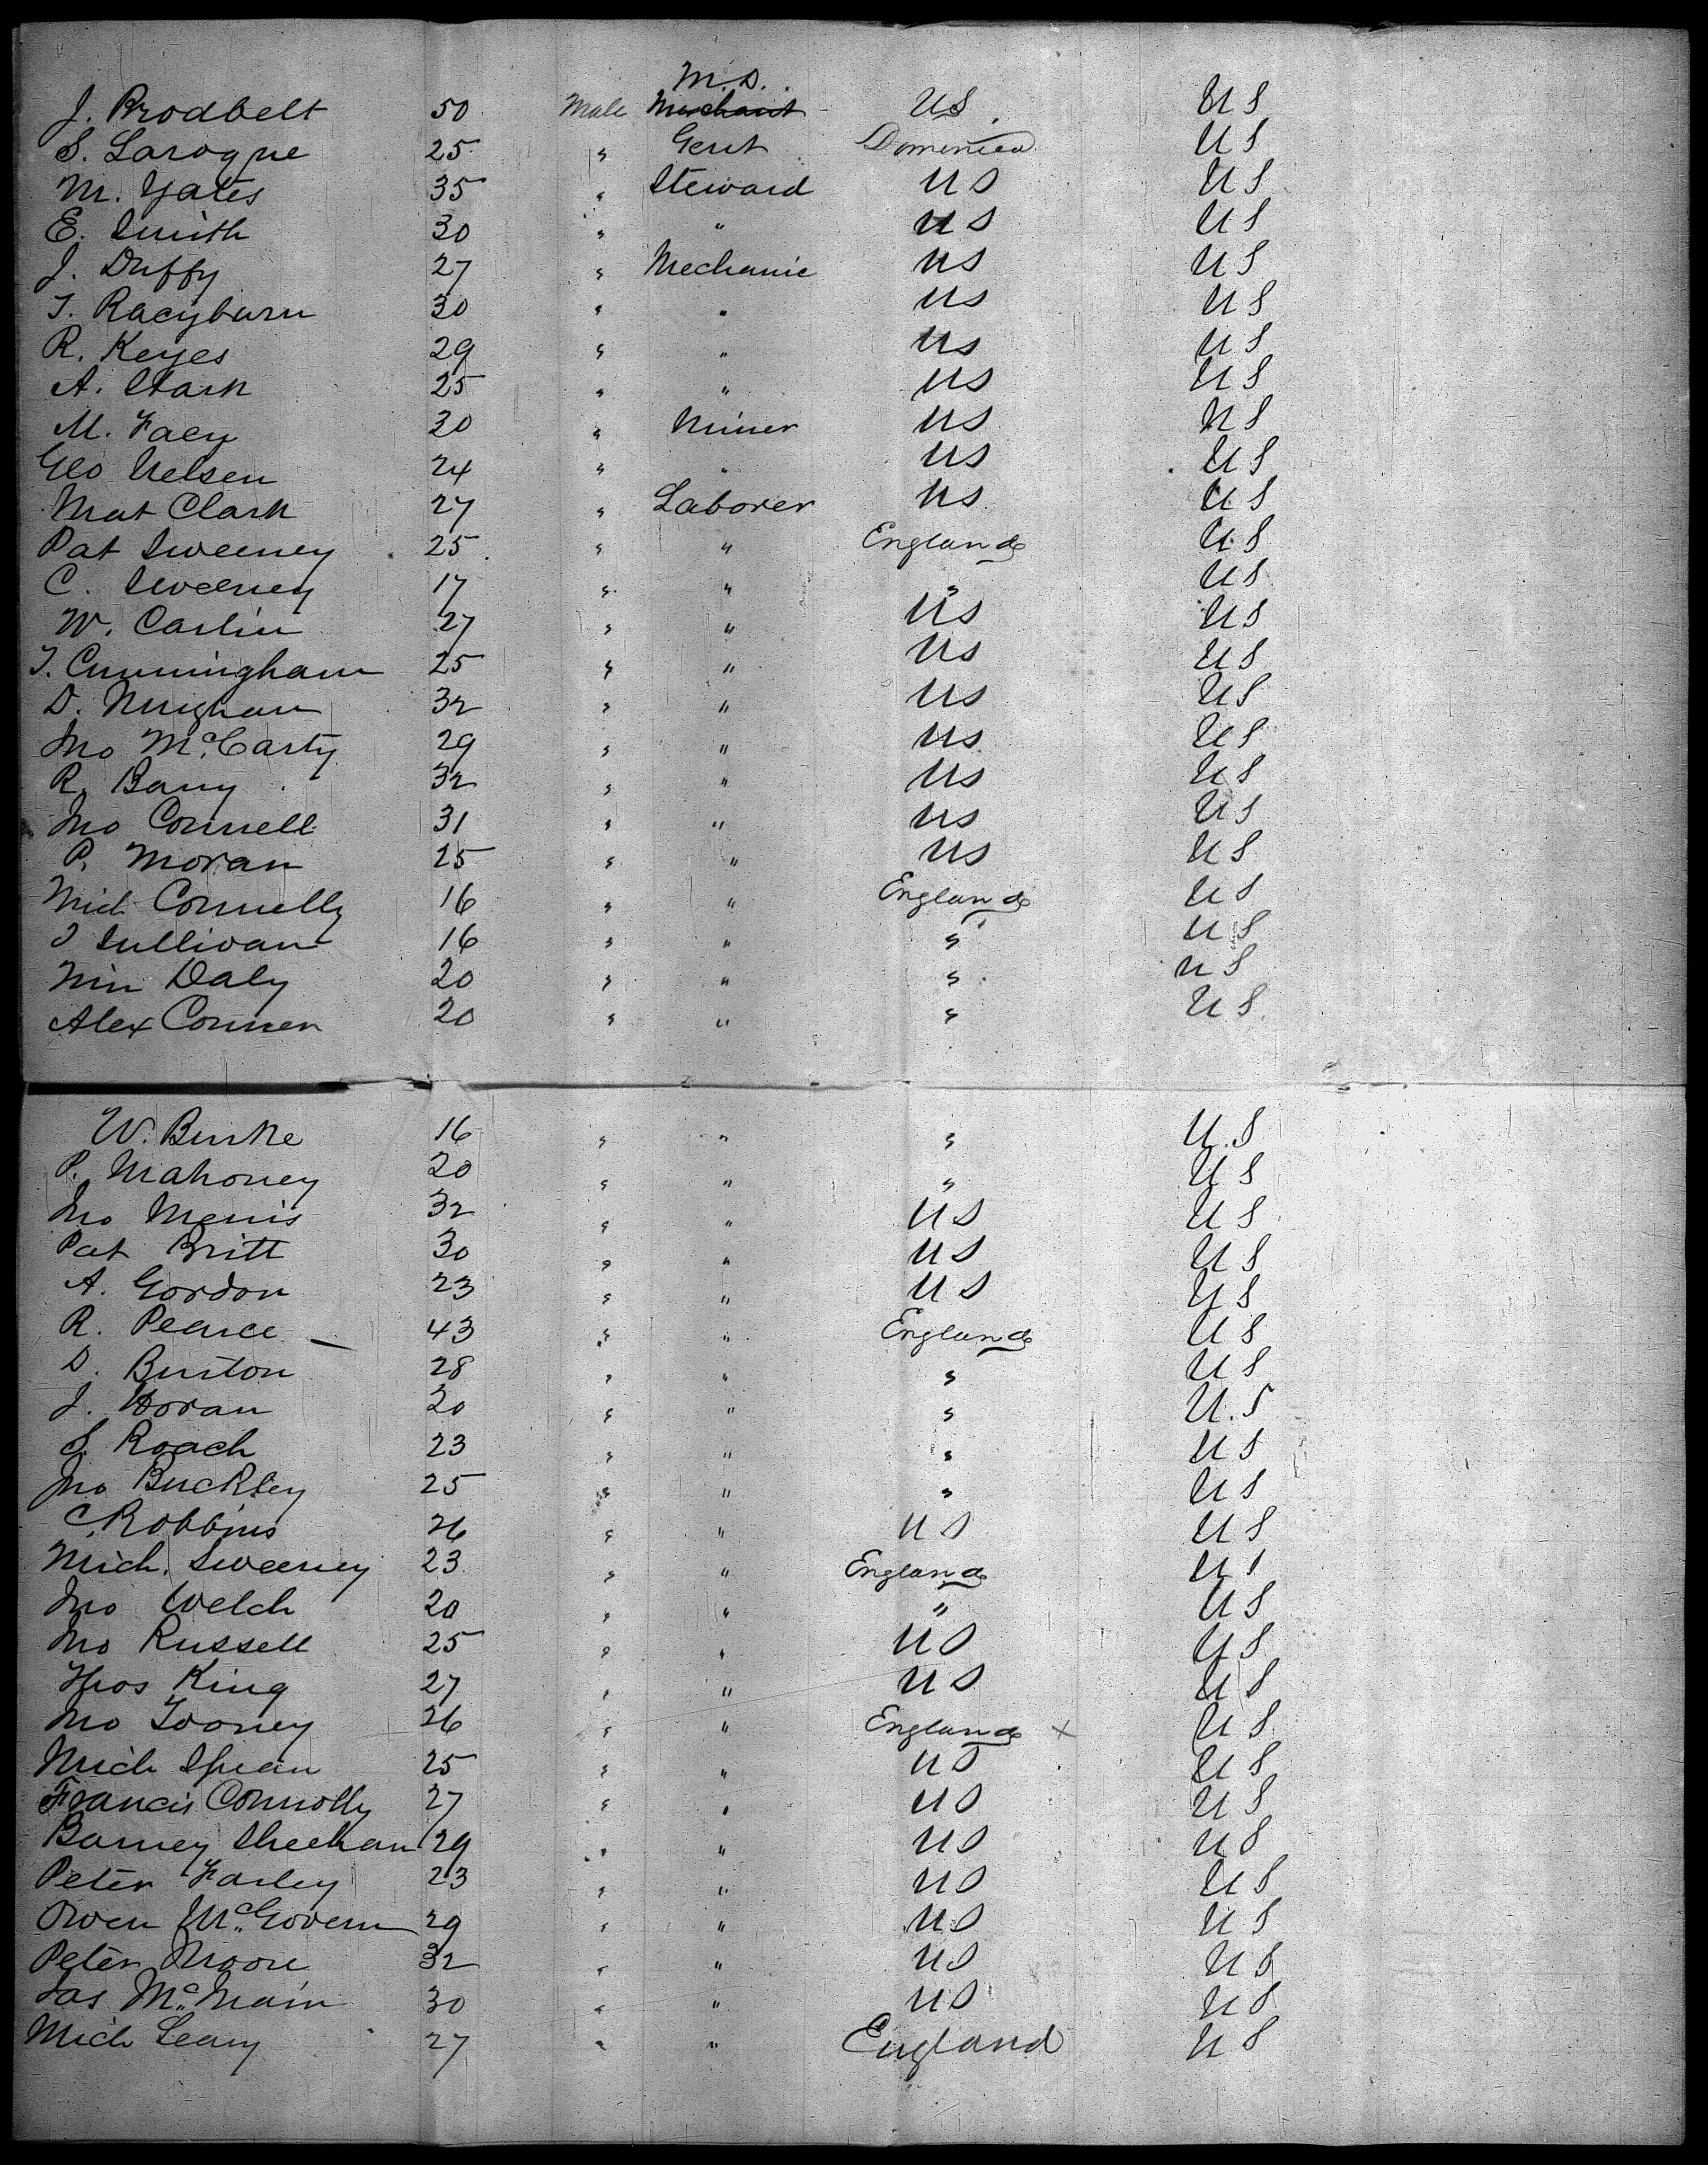 M.D.
J. Brodbelt 50 Male Merchant US. US
S. Laroque 25 " Gent Dominica US
M. Yates 35 " Steward US US
E. Smith 30 " " US US
J. Duffy 27 " Mechanic US US
T. Racyburn 30 " " US US
R. Keyes 29 " " US US
A. Stark 25 " " US US
M. Faey 30 " Miner US US
Geo Nelsen 24 " " US US
Mat Clark 27 " Laborer US US
Pat Sweeney 25 " " England US
C. Sweeney 17 " " " US
W. Carlin 27 " " US US
T. Cunningham 25 " " US US
D. 32 " " US US
Jno McCarty 29 " " US US
R. Barry 32 " " US US
Jno Connell 31 " " US US
P. Moran 25 " " US US
Mich Connelly 16 " " England US
J Sullivan 16 " " " US
Daly 20 " " " US
Alex Conner 20 " " " US
W. Burke 16 " " " U.S
P. Mahoney 20 " " " US
Jno 32 " " US US
Pat Britt 30 " " US US
A. Gordon 23 " " US US
R. Pearce 43 " " England US
D. Burton 28 " " " US
J. Horan 20 " " " U.S
S. Roach 23 " " " US
Jno Buckley 25 " " " US
C. Robbins 26 " " US US
Mich. Sweeney 23 " " England US
Jno Welch 20 " " " US
Jno Russell 25 " " US US
Thos King 27 " " US US
Jno Tooney 26 " " England x US
Mich 25 " " US US
Francis Connolly 27 " " US US
Barney Sheehan 29 " " US US
Peter Farley 23 " " US US
Owen McGovern 29 " " US US
Peter Moore 32 " " US US
Jas 30 " " US US
Mich Leary 27 " " England US